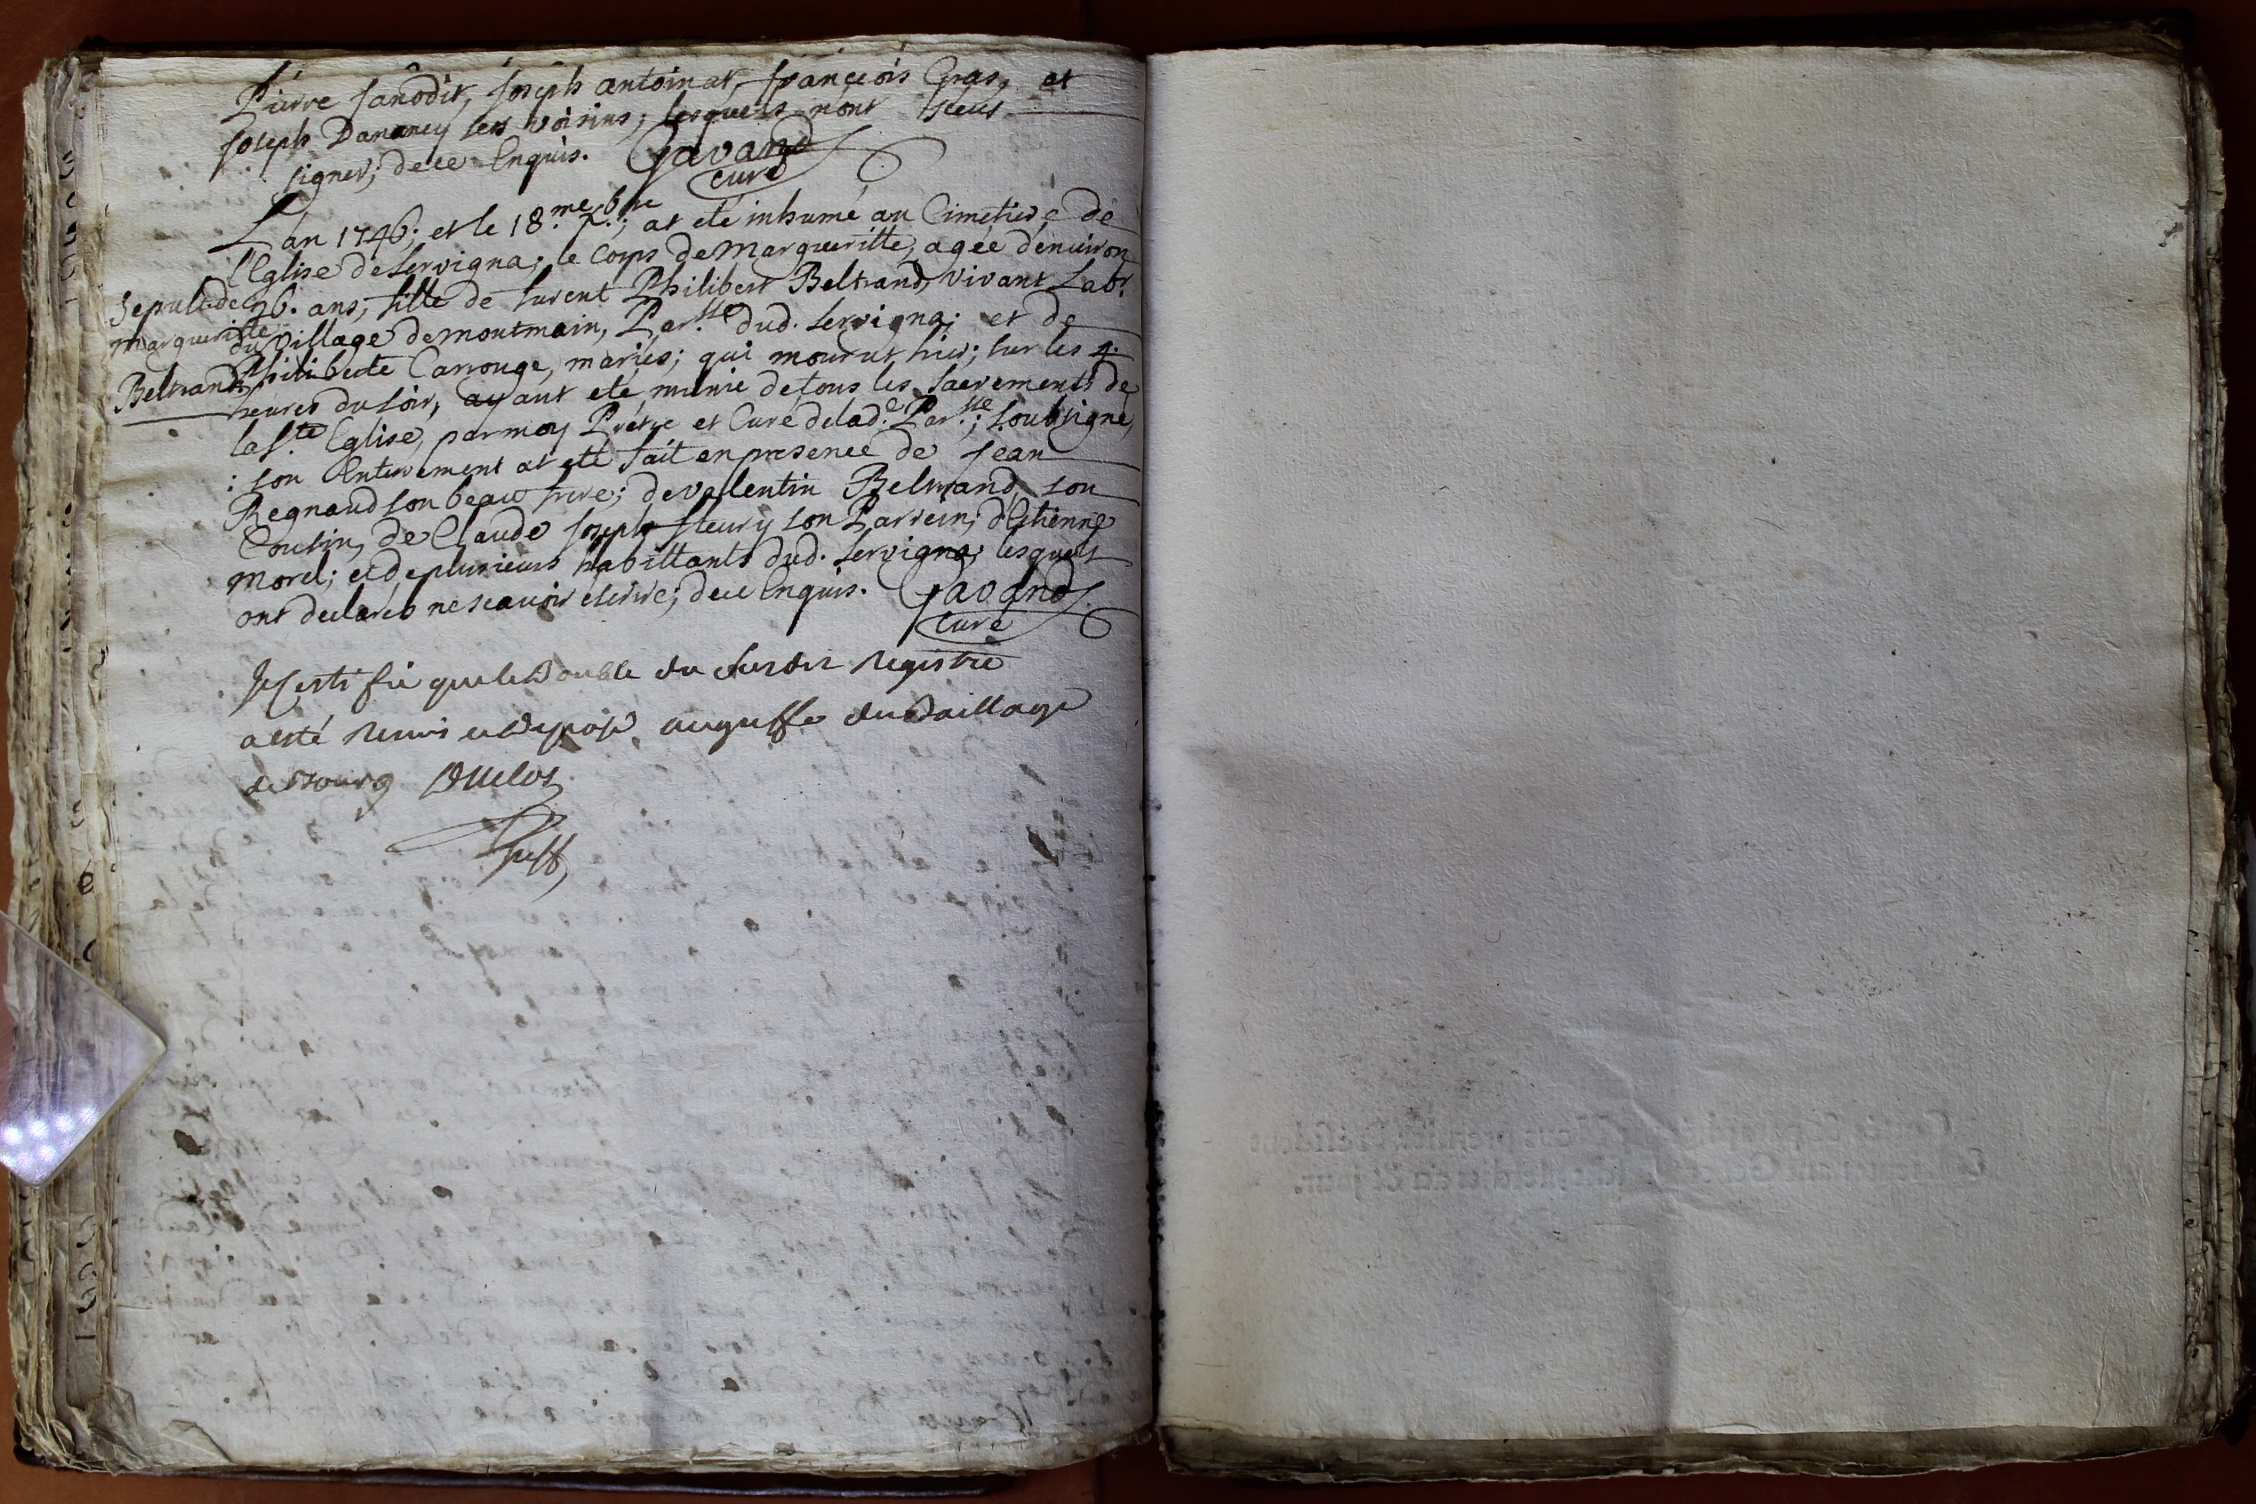 Pierre Janôdit, Joseph antoinat, françois Gras, et
Joseph Dananey ses voisins; lesquels nont sceus
signer; de ce Enquis. Gavand
curé
L'an 1746; et le 18.me Xbre; at eté inhumé au Cimetiere de
l'Eglise de Servigna; le Corps de Margueritte, agée d'enuiron
Sepulture de 26. ans, fille de furent Philibert Beltrand, vivant Labr.
Margueritte du village de montmain, Par.sse dud. Servigna; et de
Beltrand Philiberte Carronge, mariés; qui mourut hier; sur les 4.
heures du soir, ayant eté munie de tous les Sacrements de
la S.te Eglise, par moy Prétre et Curé de lad.e Par.sse; soubsigné,
: son Enterrement at eté fait en presence de Jean
Regnaud son beau frere; de valentin Beltrand, son
Cousin, de Claude Joseph fleury son Parrein; d'Etienne
morel; et de plusieurs habittants dud. Servigna; lesquels
ont declarés ne scauoir escrire; de ce Enquis. Gavand
Curé
Je Certifie que le Double du susdit Registre
a esté remis et deposé au greffe du Baillage
de Bourg Duclos
Greff